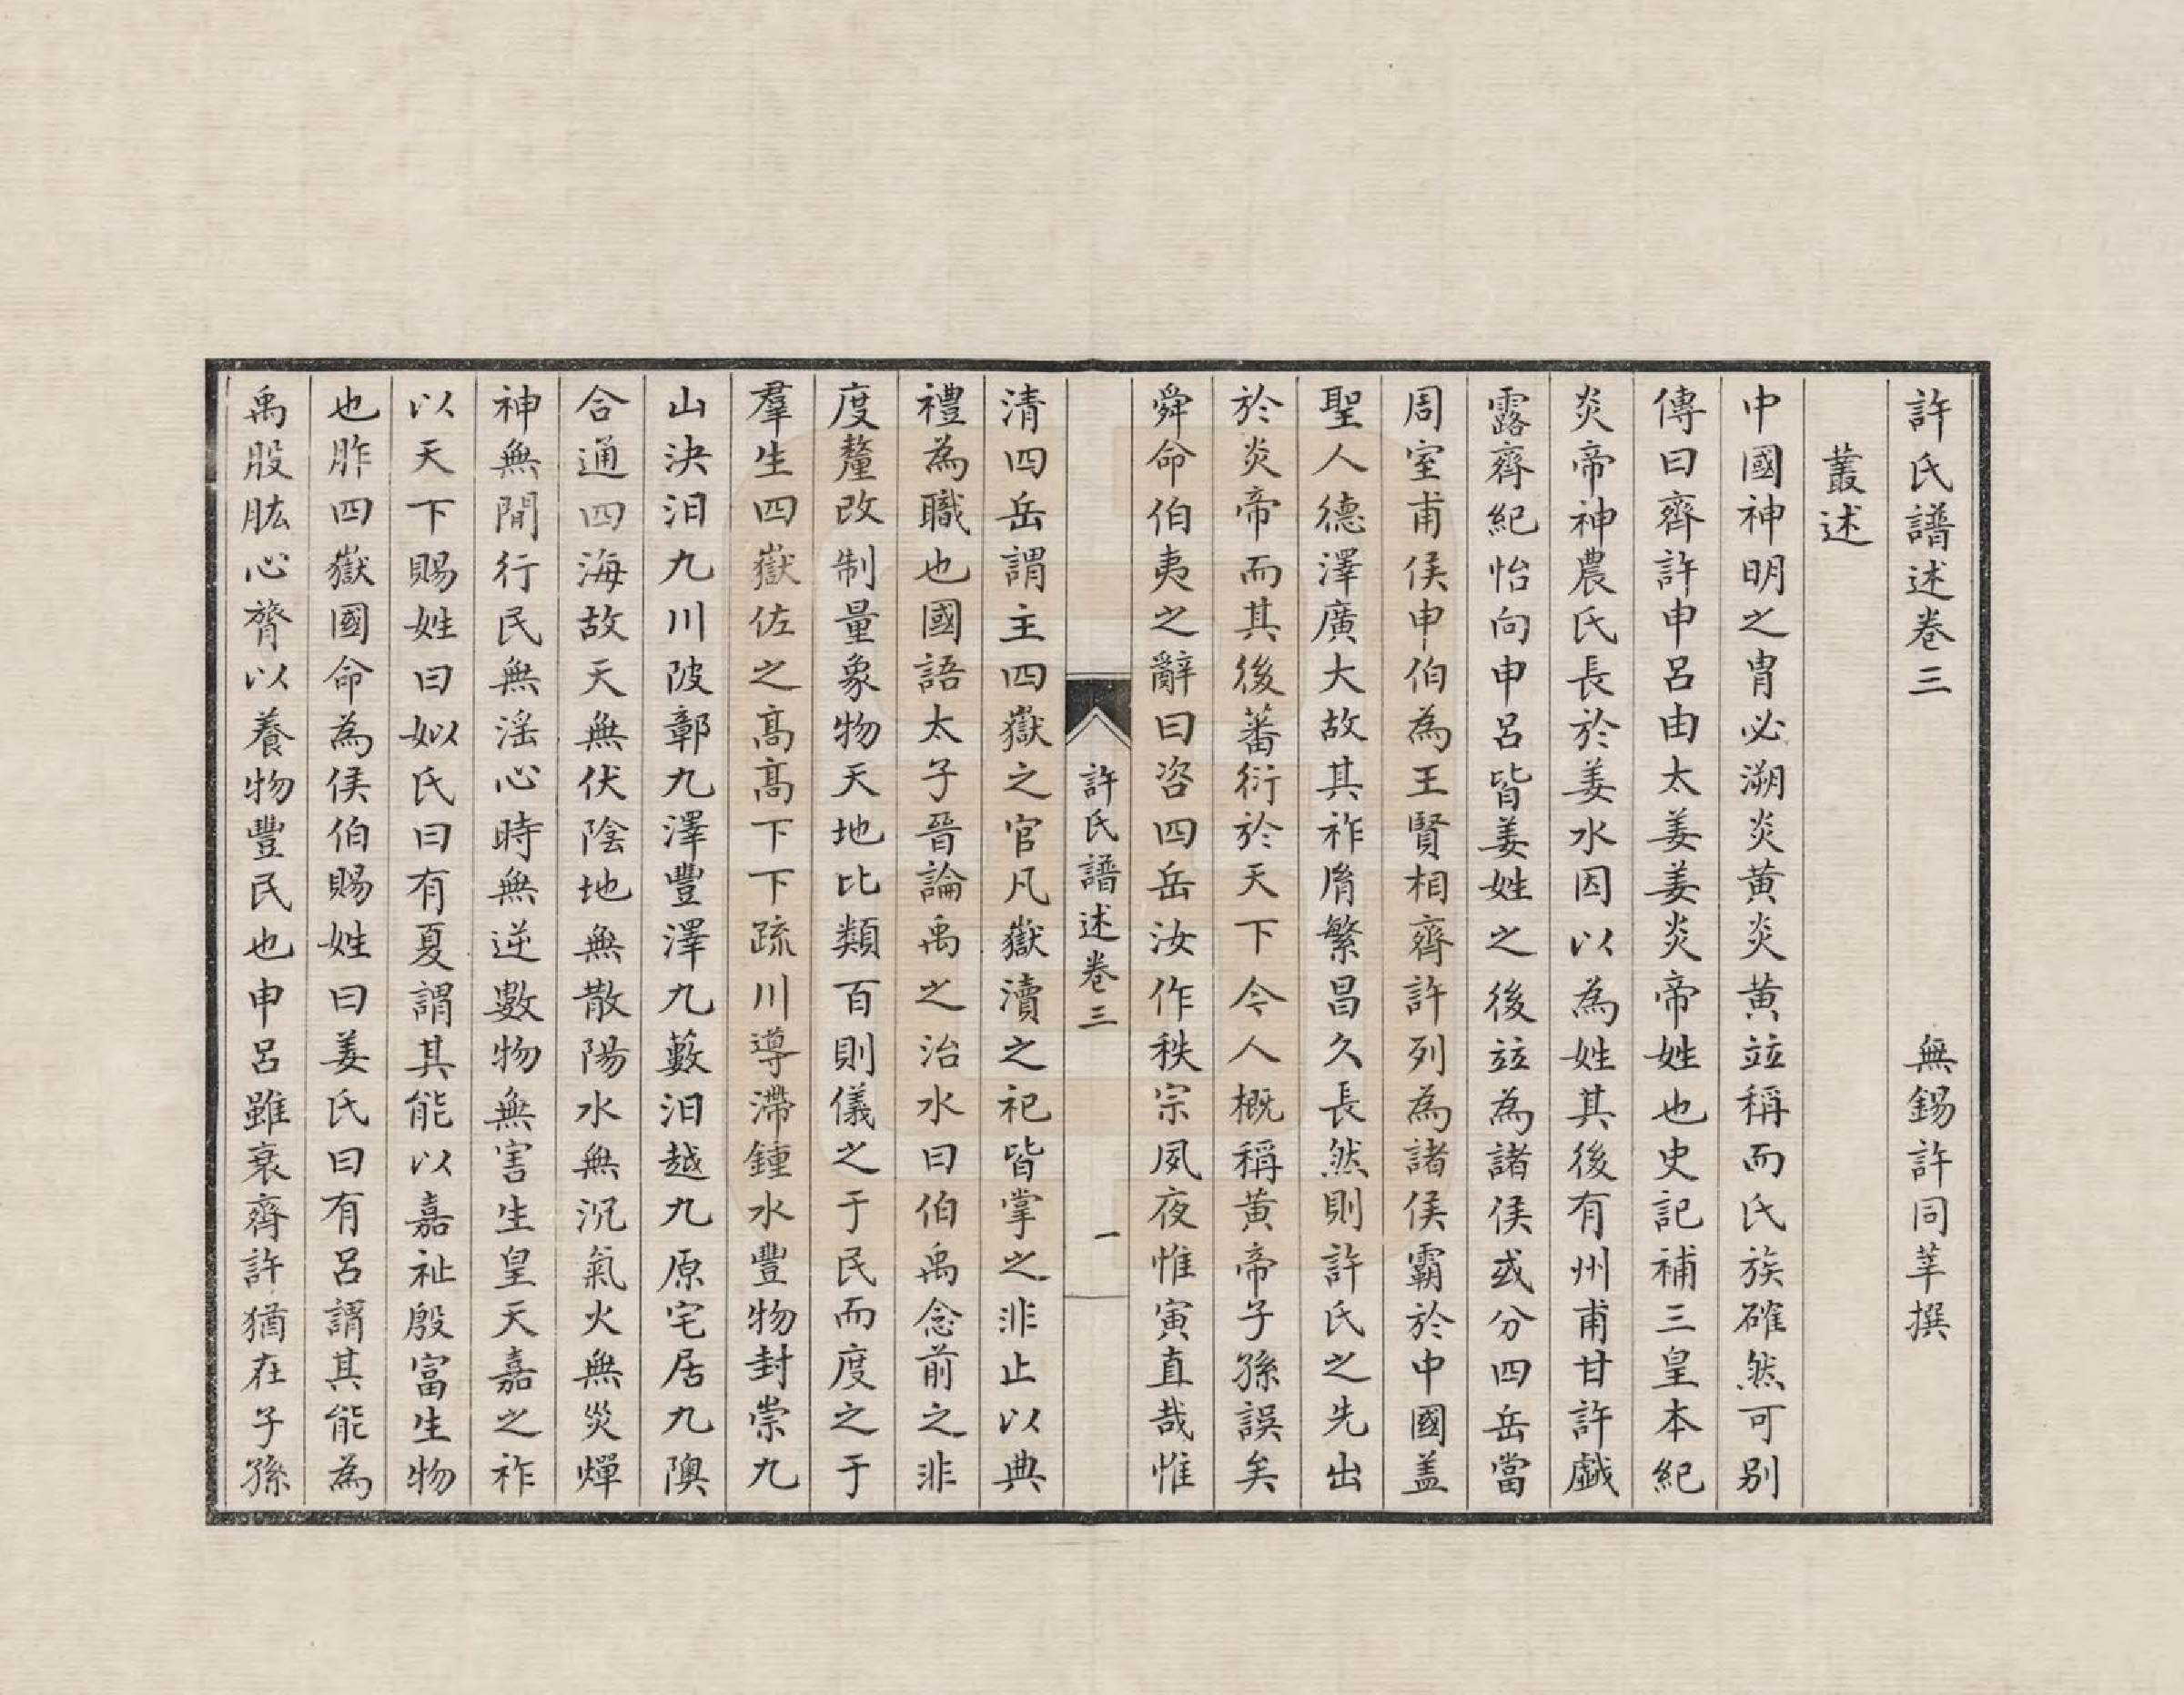 許氏譜述卷三　無錫許同莘撰
叢述
中國神明之胄必溯炎黃炎黃竝稱而氏族確然可别
傳曰齊許申呂由太姜姜炎帝姓也史記補三皇本紀
炎帝神農氏長於姜水因以為姓其後有州甫甘許戯
露齊紀怡向申呂皆姜姓之後竝為諸侯或分四岳當
周室甫侯申伯為王賢相齊許列為諸侯霸於中國盖
聖人德澤廣大故其祚胤繁昌久長然則許氏之先出
於炎帝而其後蕃衍於天下今人概稱黃帝子孫誤矣
舜命伯夷之辭曰咨四岳汝作秩宗夙夜惟寅直哉惟
許氏譜述卷三　一
清四岳謂主四嶽之官凡嶽瀆之祀皆掌之非止以典
禮為職也國語太子晉論禹之治水曰伯禹念前之非
度釐改制量象物天地比類百則儀之于民而度之于
羣生四嶽佐之高高下下疏川導滯鍾水豐物封崇九
山決汨九川陂鄣九澤豐澤九藪汨越九原宅居九隩
合通四海故天無伏陰地無散陽水無沉氣火無災燀
神無閒行民無淫心時無逆數物無害生皇天嘉之祚
以天下賜姓曰姒氏曰有夏謂其能以嘉祉殷富生物
也胙四嶽國命為侯伯賜姓曰姜氏曰有呂謂其能為
禹股肱心膂以養物豐民也申呂雖衰齊許猶在子孫